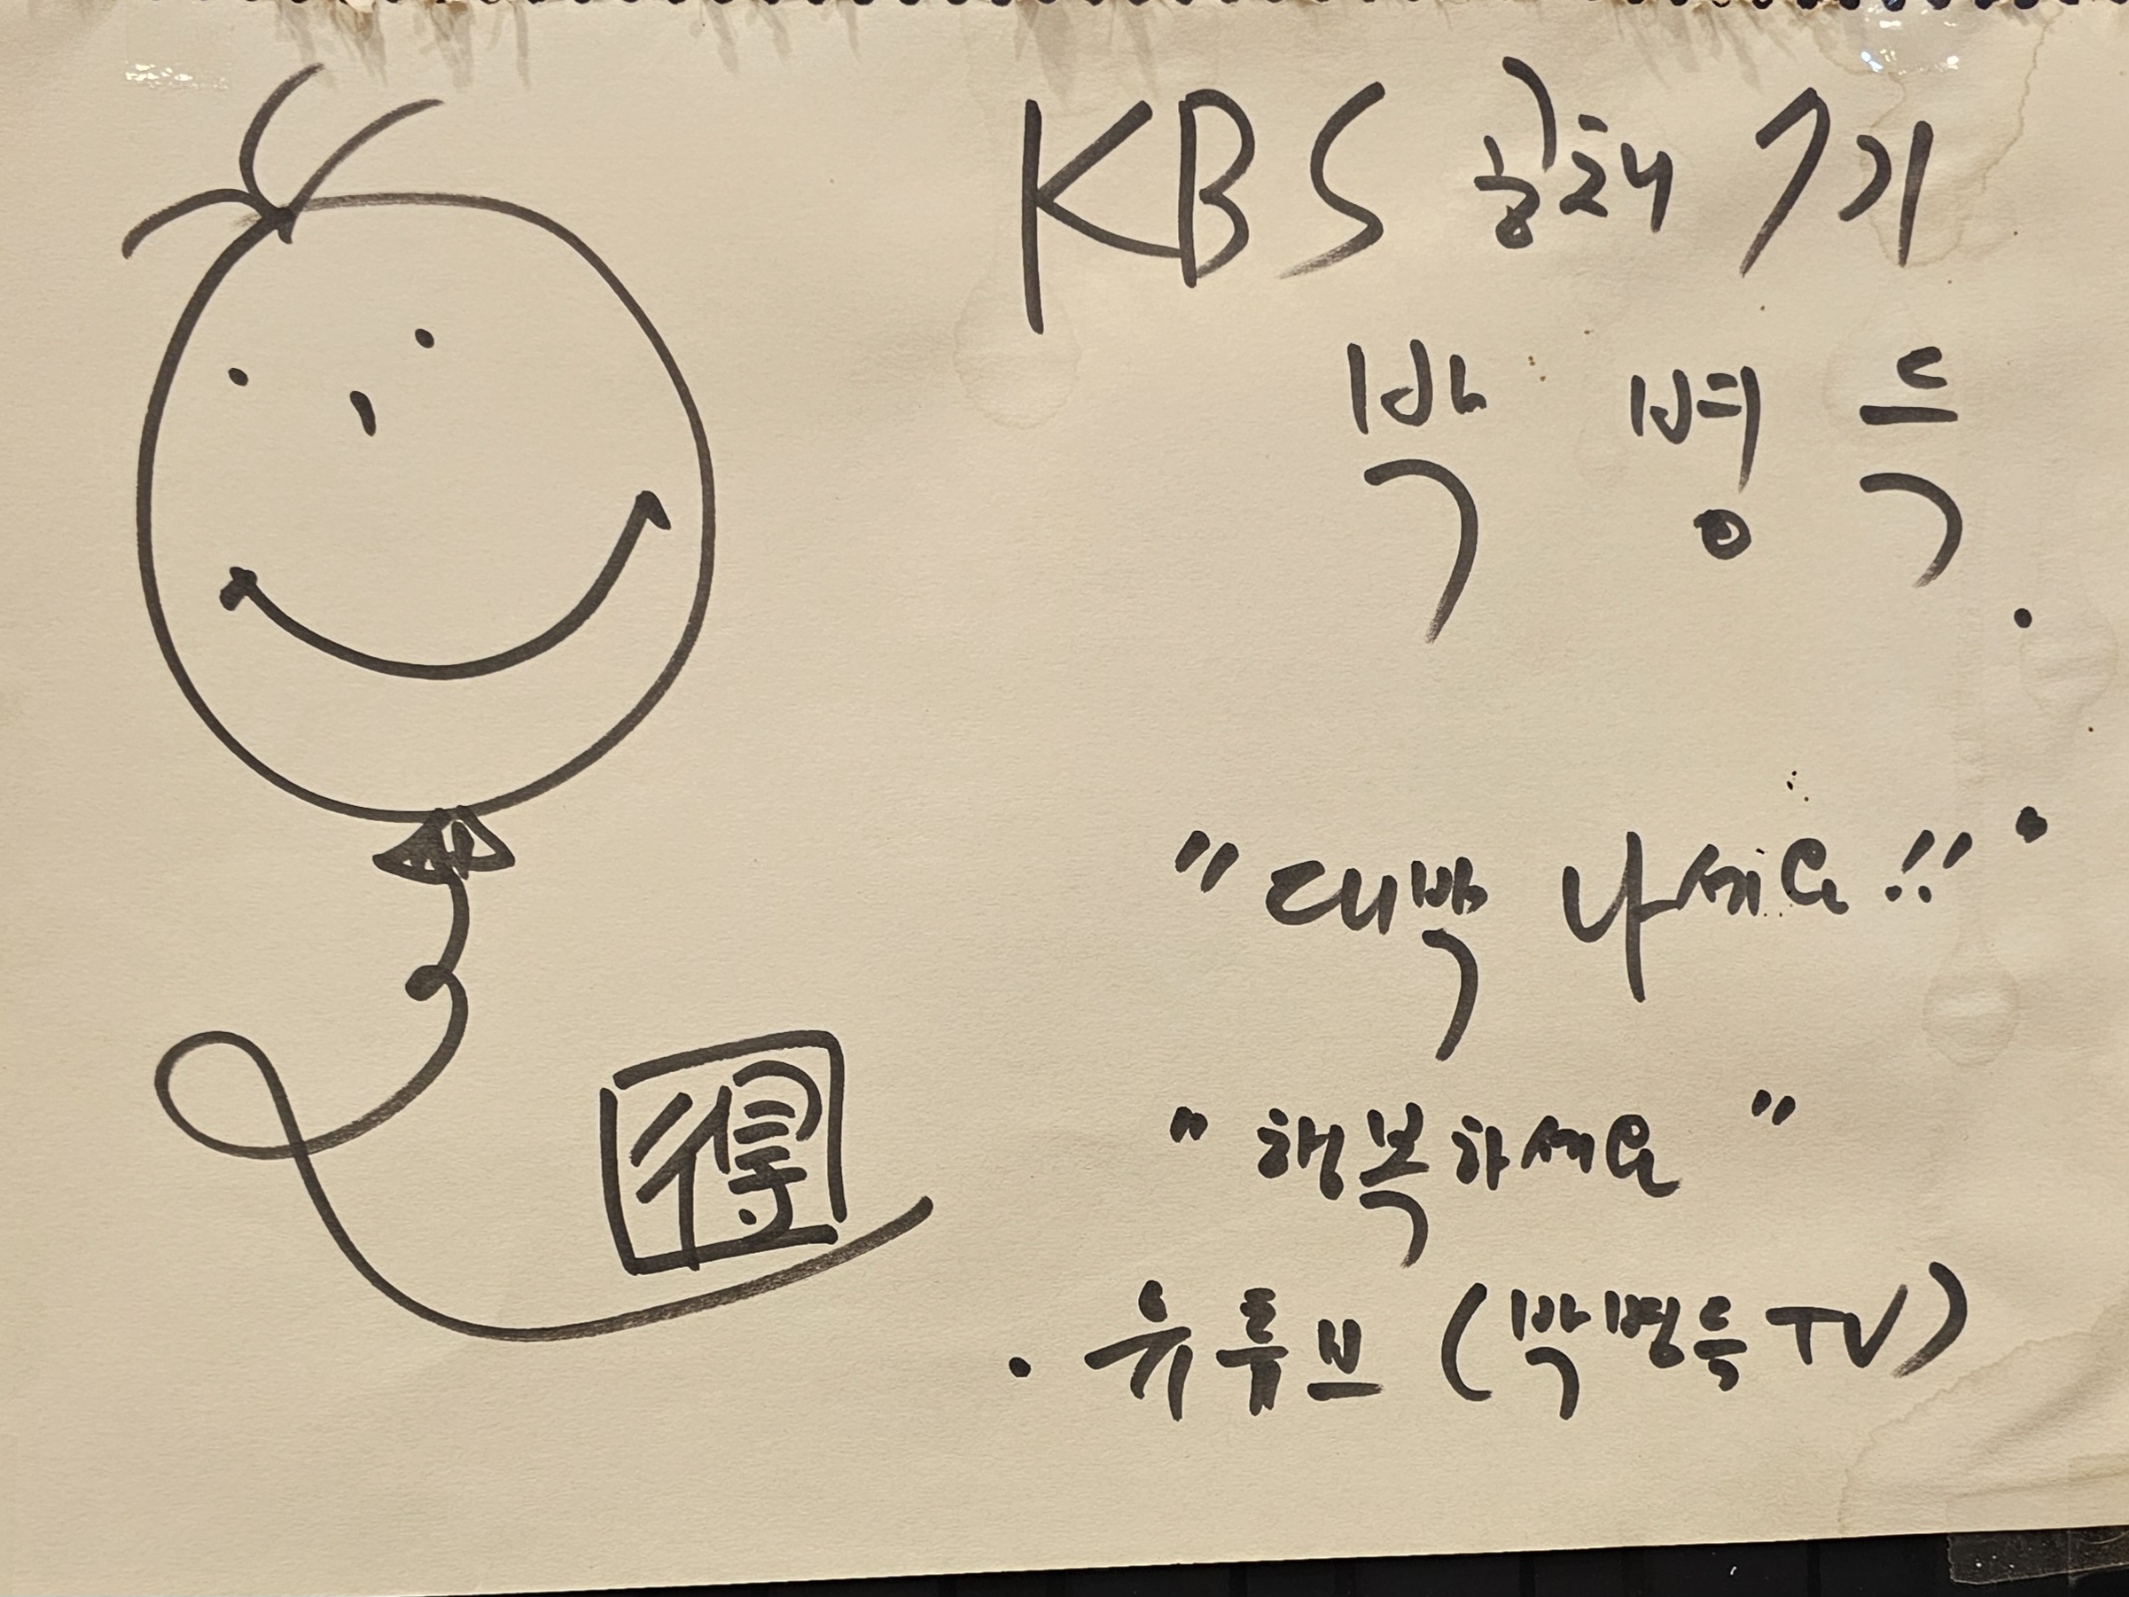 KBS 공채 7기
박 병 득
"대박 나세요!!"
"행복하세요"
得
· 유튜브 (박병득TV)